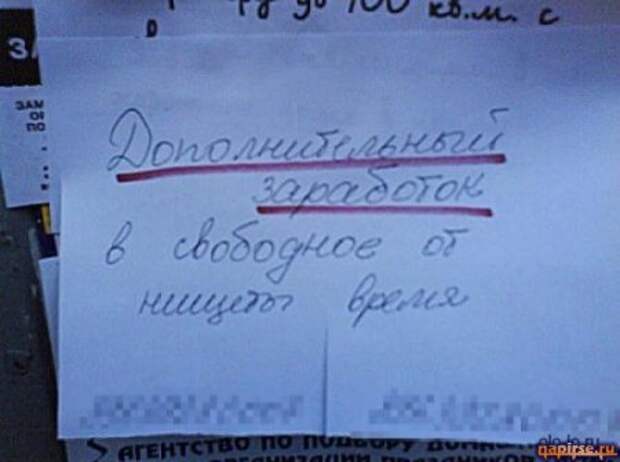 до 100 кв.м. с
ЗАМ
ПО
Дополнительный
заработок
в свободное от
нищеты время
АГЕНТСТВО ПО ПОДБОРУ
qapirse.ru